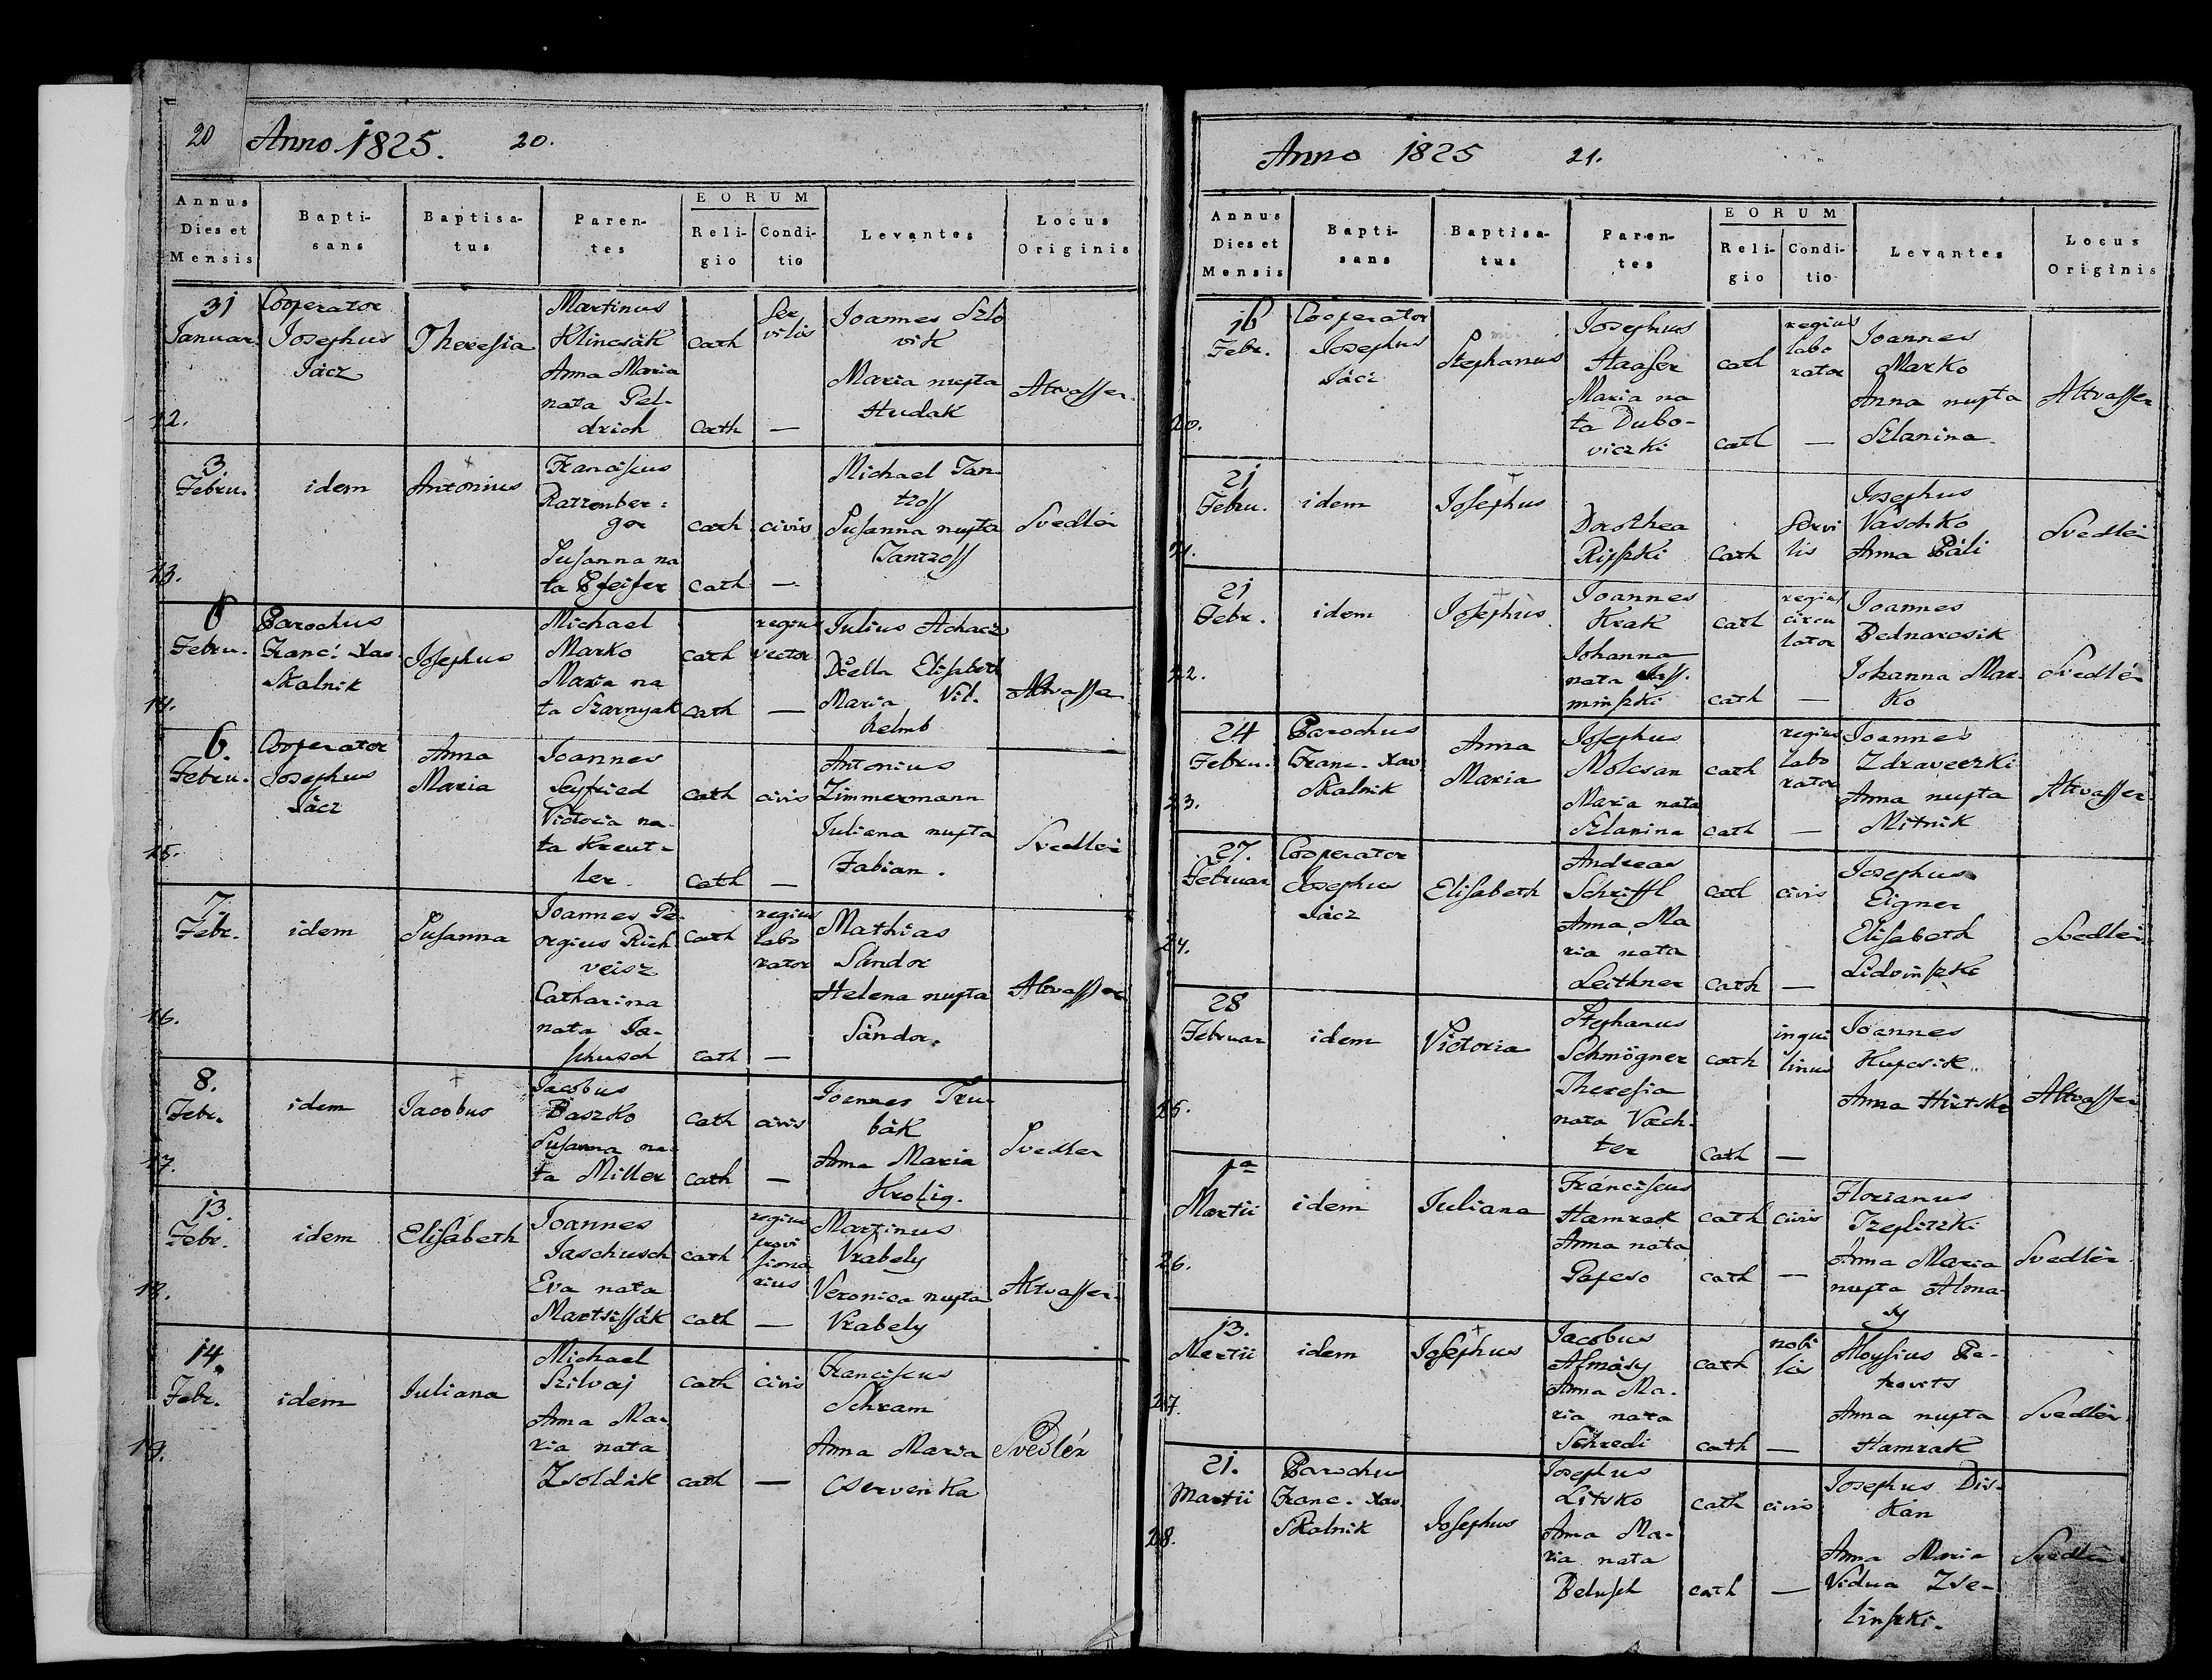 20 Anno 1825. 20.
Annus Dies et Mensis | Bapti-sans | Baptisa-tus | Paren-tes | EORUM Reli-gio | Condi-tio | Levantes | Locus Originis
12.
31 Januar.
Cooperator Josephus Jácz
Theresia
Martinus Klincsák
Anna Maria nata Pel-drich
Cath
Cath
Ser vilis
—
Joannes Szlo vik
Maria nupta Hudak
Altvasser.
13.
3. Febru.
idem
Antonius
Franciscus Rattenber-ger
Susanna na ta Pfeifer
Cath
Cath
civis
—
Michael Jan tzoff
Susanna nupta Jantzoff
Svedlér
14.
6 Febru.
Parochus Franc. Xav. Skalnik
Josephus
Michael Marko
Maria na ta Szarnyak
Cath
Cath
regius vector
—
Julius Achacz
Della Elisabeth Maria Vil-helmb
Altvasser
15.
6. Febru.
Cooperator Josephus Jácz
Anna Maria
Joannes Seyfried
Victoria na-ta Kreut-ler.
Cath
Cath
civis
—
Antonius Zimmermann
Juliana nupta Fabian.
Svedlér
16.
7. Febr.
idem
Susanna
Joannes Ge-orgius Rich veisz
Catharina nata Ja-schusch
Cath
Cath
regius labo rator
—
Mathias Sándor
Helena nupta Sándor.
Altvasser
17.
8. Febr.
idem
Jacobus
Jacobus Baszko
Susanna na-ta Miller
Cath
Cath
civis
—
Joannes Tru-bák
Anna Maria Krolig.
Svedler
18.
13. Febr.
idem
Elisabeth
Joannes Jaschusch
Eva nata Martsissák
Cath
Cath
regius provi siona rius
—
Martinus Vrabely
Veronica nupta Vrabely
Altvasser.
19.
14. Febr.
idem
Juliana
Michael Szilvaj
Anna Ma-ria nata Zsoldák
Cath
cath
civis
—
Franciscus Schram
Anna Maria Cservenka
Svedlér
Anno 1825 21.
Annus Dies et Mensis | Bapti-sans | Baptisa-tus | Paren-tes | EORUM Reli-gio | Condi-tio | Levantes | Locus Originis
20.
16 Febr.
Cooperator Josephus Jácz
Stephanus
Josephus Haaser
Maria na ta Dubo-viczki
Cath
cath
regius labo rator
—
Joannes Marko
Anna nupta Szlanina
Altvasser
21.
21 Febru.
idem
Josephus
Dorothea Risszki
Cath
Servi lis
Josephus Vaschko
Anna Páli
Svedlér
22.
21 Febr.
idem
Josephus
Joannes Krak
Johanna nata
Cath
cath
regius circu lator
—
Joannes Bednarcsik
Johanna Mar-ko
Svedlér
23.
24 Febru.
Parochus Franc. Xav. Skalnik
Anna Maria
Josephus Molcsan
Maria nata Szlanina
Cath
cath
regius labo rator
—
Joannes Zdraveczki
Anna nupta Mitnik
Altvasser
24.
27. Februar
Cooperator Josephus Jácz
Elisabeth
Andreas Schriffl
Anna Ma ria nata Leithner
cath
cath
civis
—
Josephus Eigner
Elisabeth Lidvinszki
Svedlér
25.
28 Februar
idem
Victoria
Stephanus Schmögner
Theresia nata Væch-ter
cath
Cath
inqui linus
—
Joannes Kupcsik
Anna
Altvasser
26.
1a Martii
idem
Juliana
Franciscus Hamrak
Anna nata Papcso
Cath
cath
civis
—
Florianus Tzeplitzki
Anna Maria nupta Alma-sy
Svedlér
27.
13. Martii
idem
Josephus
Jacobus Almásy
Anna Ma-ria nata Schredi
Cath
cath
nobi lis
—
Aloysius Pe-trovits
Anna nupta Hamrak
Svedlér
28.
21. Martii
Parochus Franc. Xav. Skalnik
Josephus
Josephus Litsko
Anna Ma-ria nata Belusch
Cath
cath
civis
—
Josephus Dis-kán
Anna Maria Vidua Zse-linszki.
Svedlér